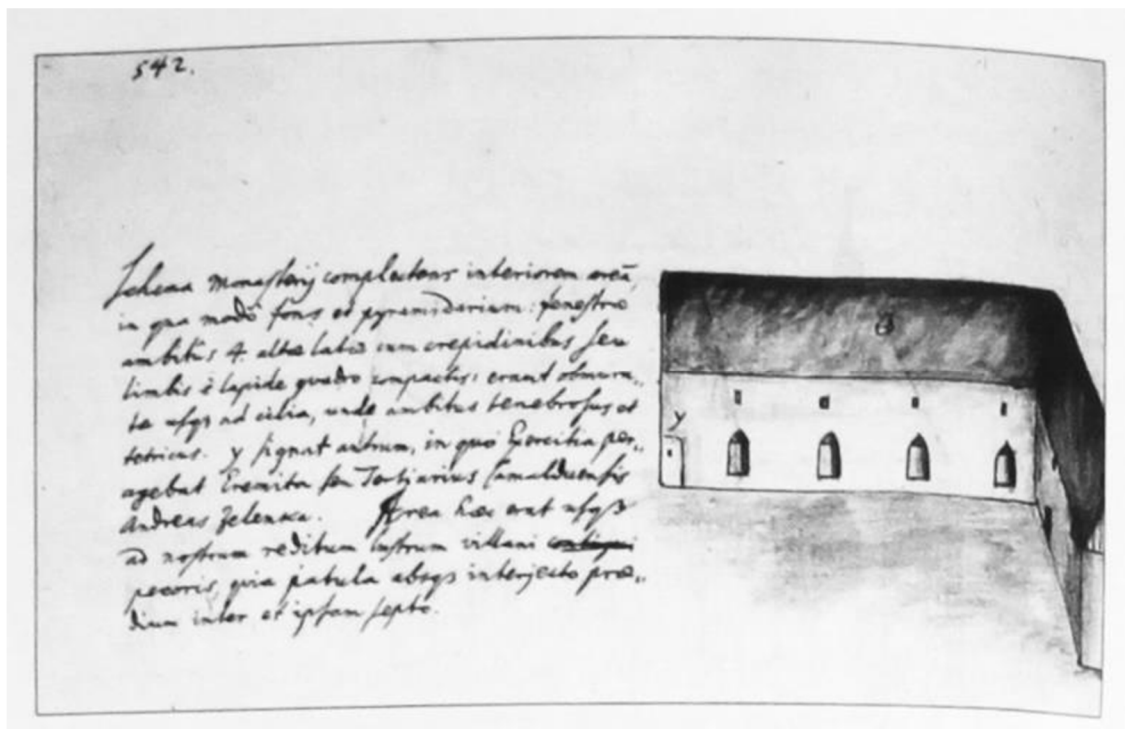 542.
Schema Monasterij complectens interiorem areã,
in qua modò fons et pyramidarium: fenestræ
ambitûs 4. altæ latæ cum crepidinibus seu
limbis è lapide quadro compactis: erant obmura„
tæ usq3 ad cilia, unde ambitus tenebrosus et
tetricus. y signat antrum, in quo Exercitia per„
agebat Eremita seu Tertiarius Camalduensis
Andreas Jelenka. Area hæc erat usq3
ad nostrum reditum lustrum villani contigui
pecoris, quia patula absq3 interjecto præ„
dium inter et ipsam septo.
y